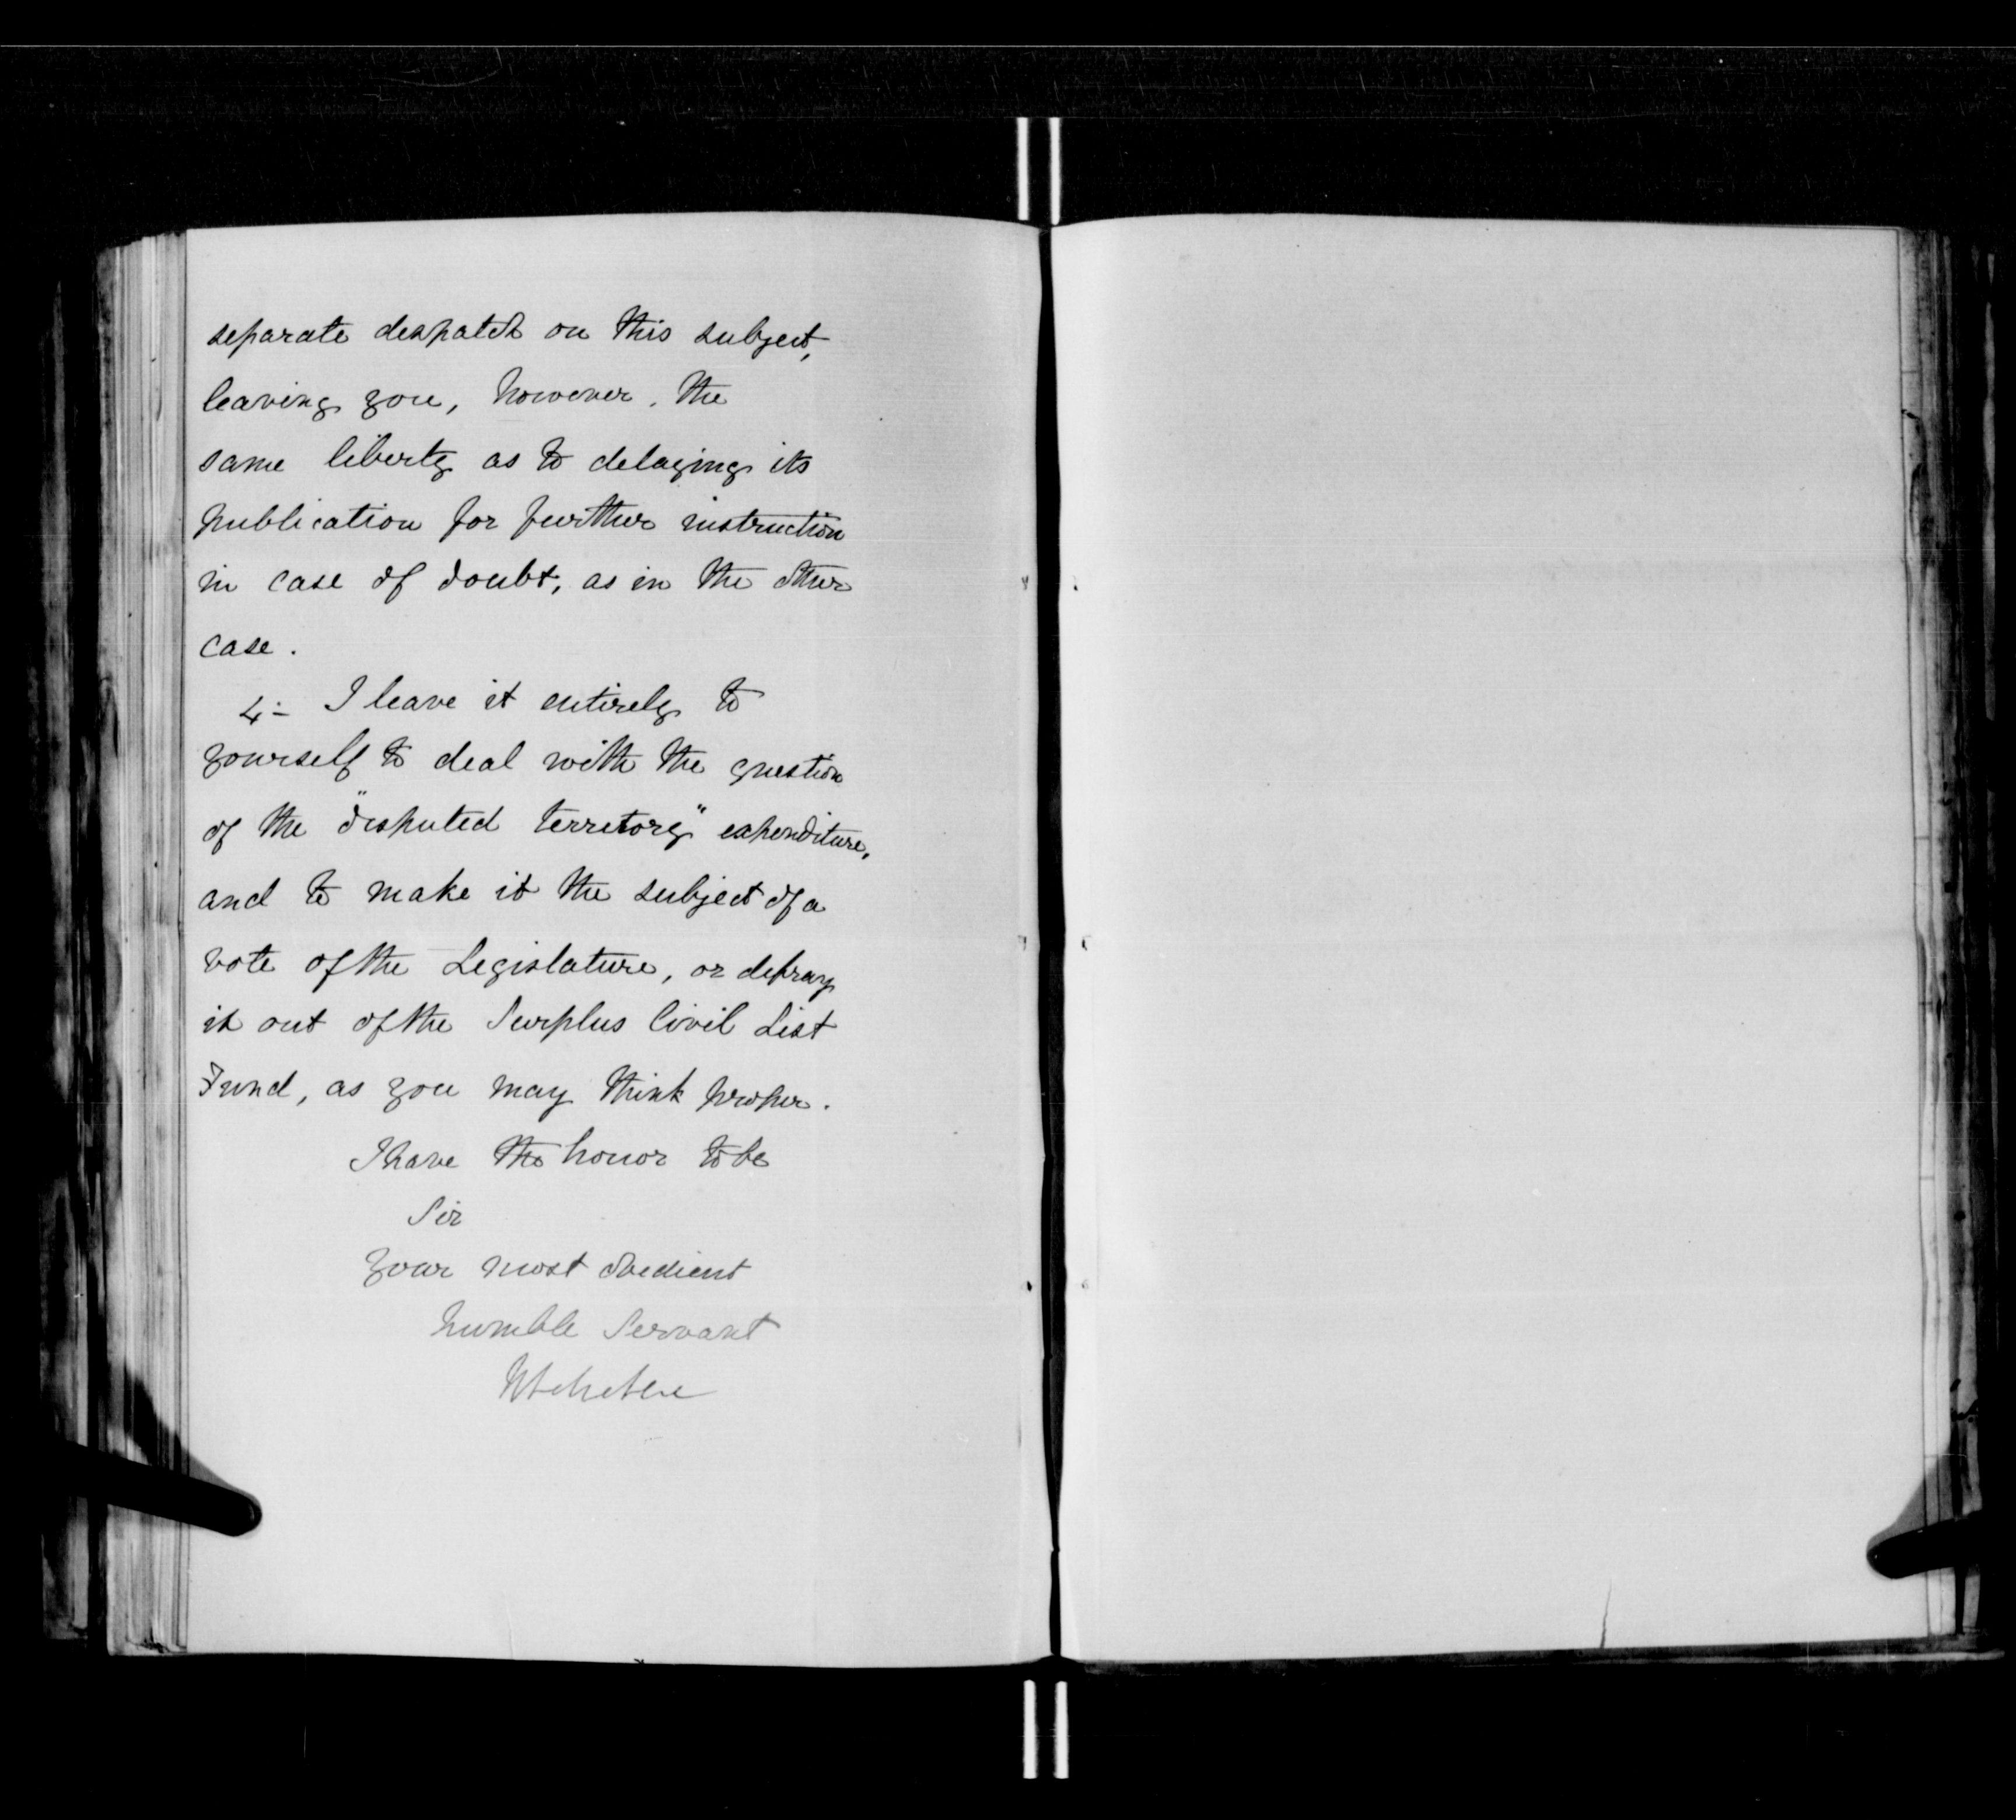 separate despatch on this subject,
leaving you, however, the
same liberty as to delaying its
publication for further instruction
in case of doubt, as in the other
case.
4 - I leave it entirely to
yourself to deal with the question
of the "disputed territory" expenditure,
and to make it the subject of a
vote of the Legislature, or defray
it out of the Surplus Civil List
Fund, as you may think proper.
I have the honor to be
Sir
Your most obedient
humble Servant